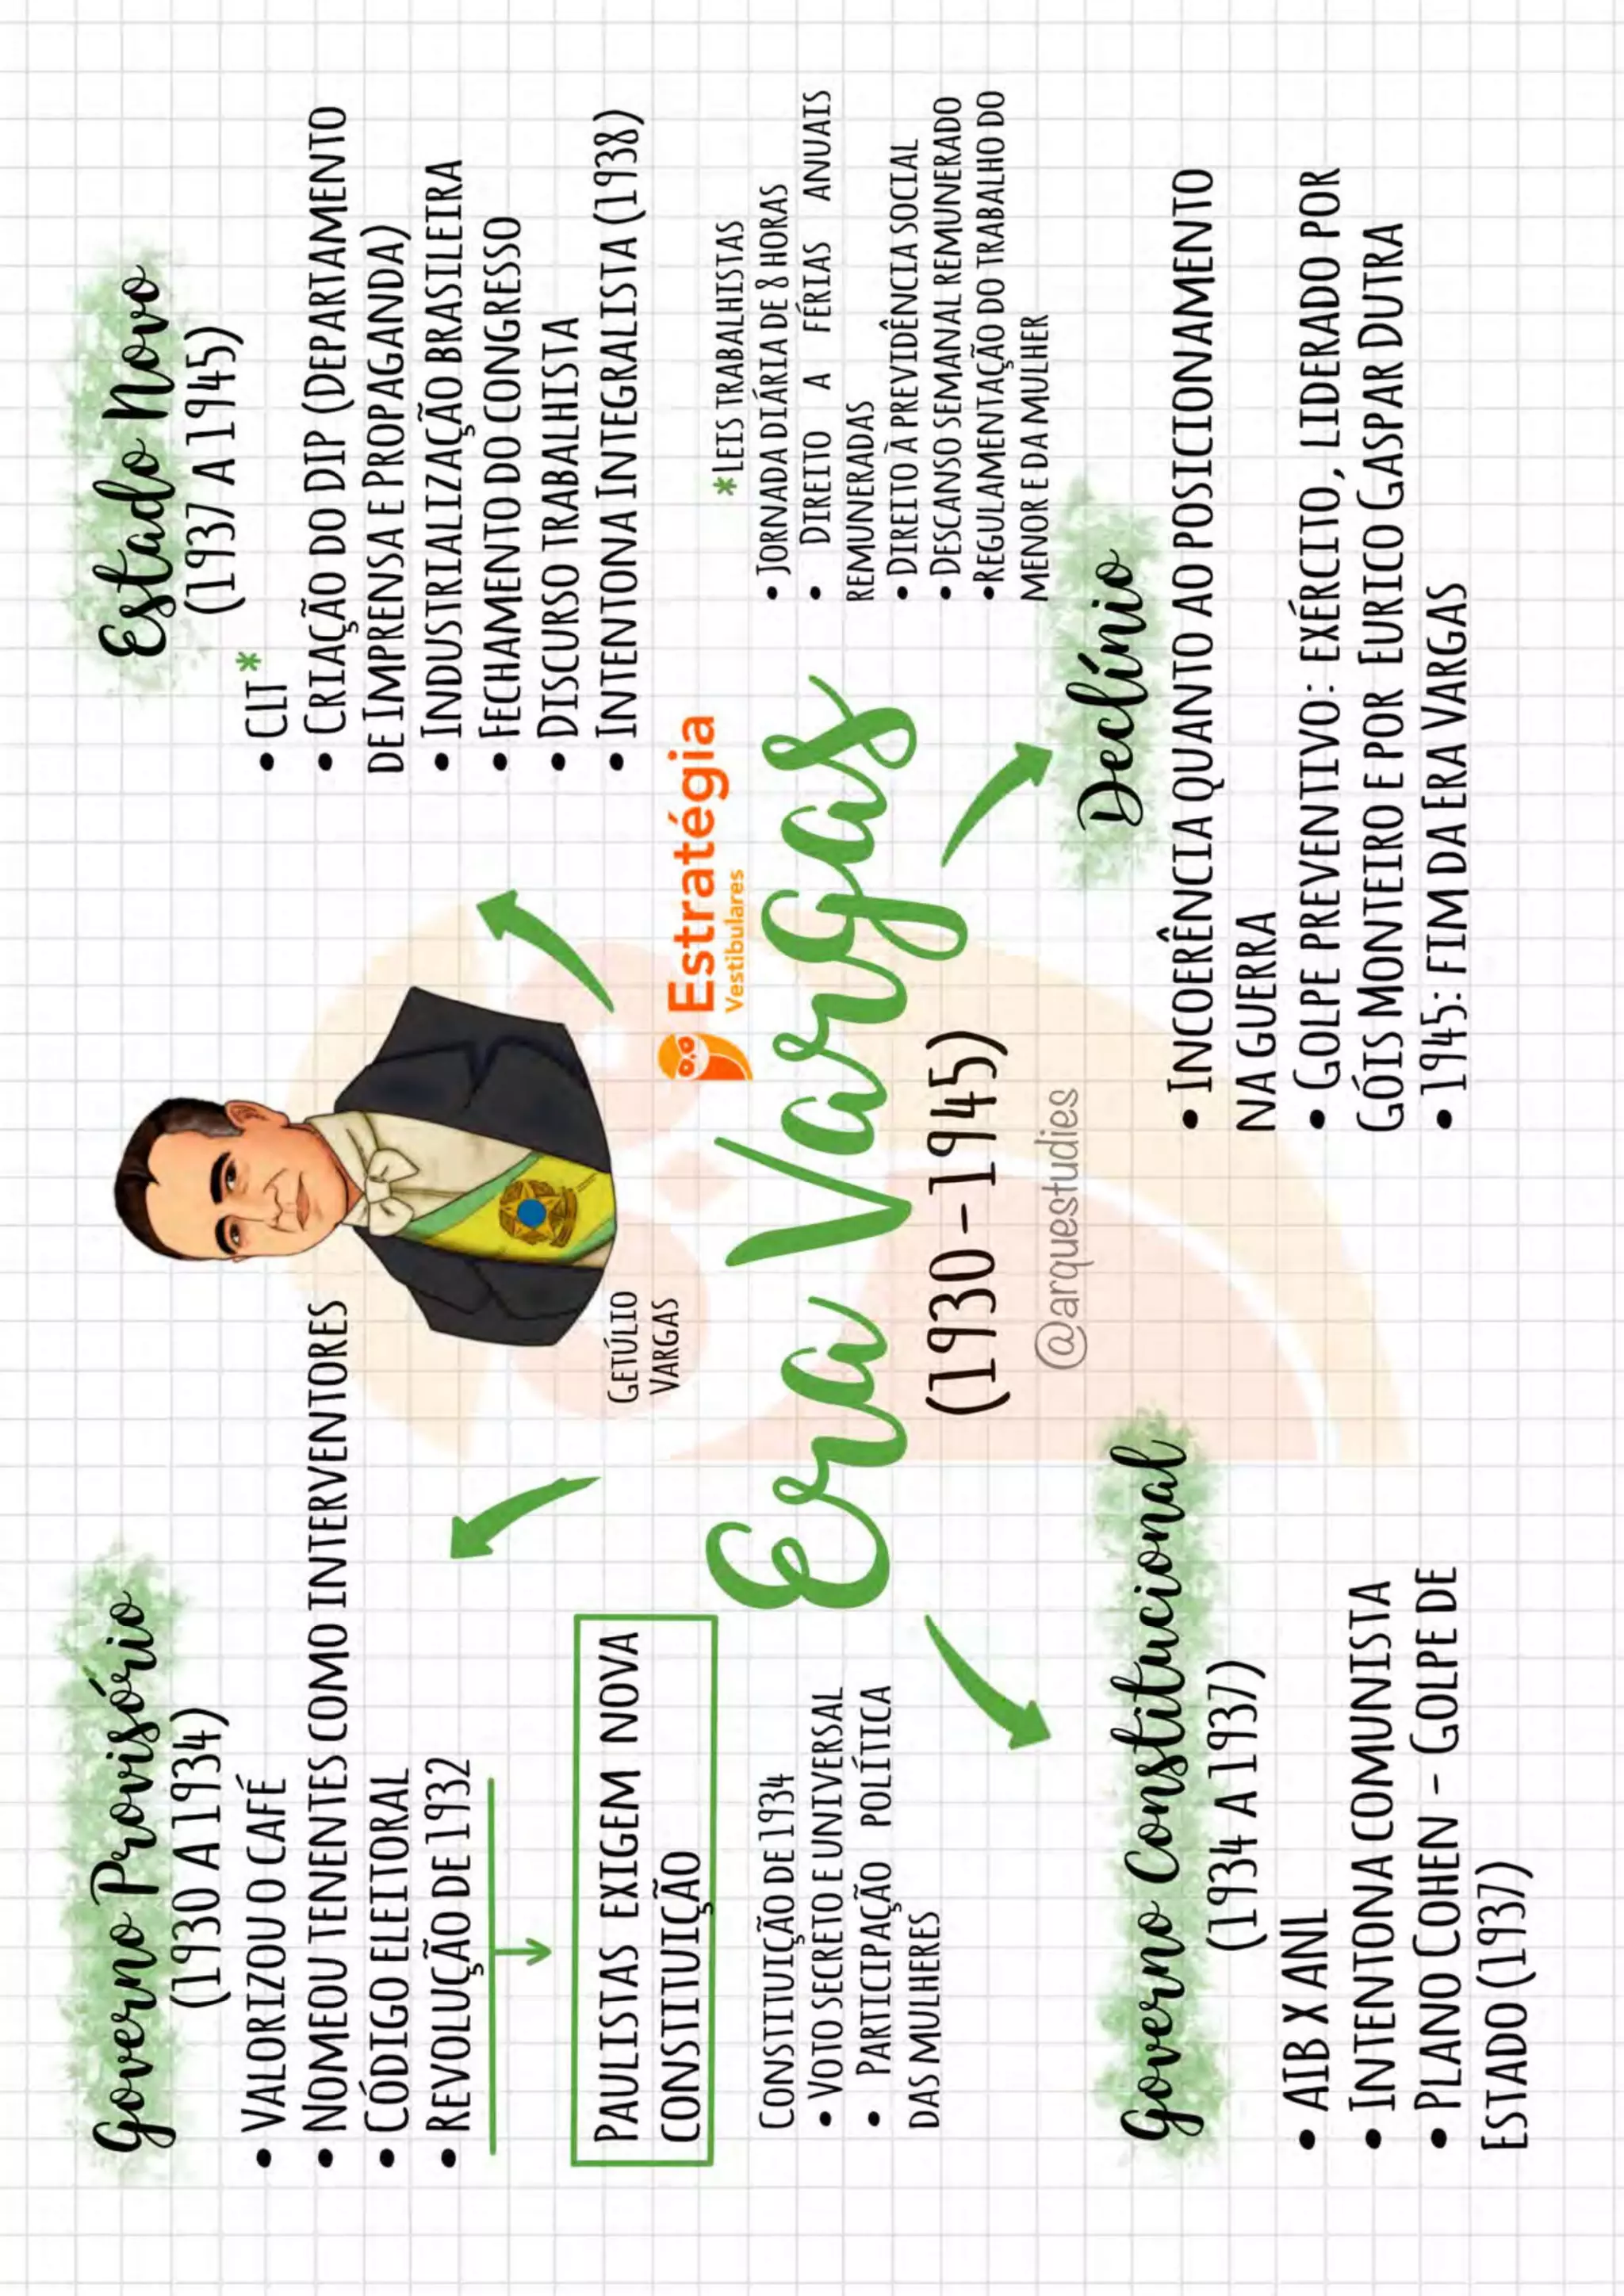 Governo Provisório
(1930 A 1934)
• VALORIZOU O CAFÉ
• NOMEOU TENENTES COMO INTERVENTORES
• CÓDIGO ELEITORAL
• REVOLUÇÃO DE 1932
PAULISTAS EXIGEM NOVA
CONSTITUIÇÃO
CONSTITUIÇÃO DE 1934
• VOTO SECRETO E UNIVERSAL
• PARTICIPAÇÃO POLÍTICA
DAS MULHERES
Governo Constitucional
(1934 A 1937)
• AIB X ANL
• INTENTONA COMUNISTA
• PLANO COHEN - GOLPE DE
ESTADO (1937)
GETÚLIO
VARGAS
Estratégia
Vestibulares
Era Vargas
(1930-1945)
@arquestudies
Estado Novo
(1937 A 1945)
• CLT*
• CRIAÇÃO DO DIP (DEPARTAMENTO
DE IMPRENSA E PROPAGANDA)
• INDUSTRIALIZAÇÃO BRASILEIRA
• FECHAMENTO DO CONGRESSO
• DISCURSO TRABALHISTA
• INTENTONA INTEGRALISTA (1938)
*LEIS TRABALHISTAS
• JORNADA DIÁRIA DE 8 HORAS
• DIREITO A FÉRIAS ANUAIS
REMUNERADAS
• DIREITO À PREVIDÊNCIA SOCIAL
• DESCANSO SEMANAL REMUNERADO
• REGULAMENTAÇÃO DO TRABALHO DO
MENOR E DA MULHER
Declínio
• INCOERÊNCIA QUANTO AO POSICIONAMENTO
NA GUERRA
• GOLPE PREVENTIVO: EXÉRCITO, LIDERADO POR
GÓIS MONTEIRO E POR EURICO GASPAR DUTRA
• 1945: FIM DA ERA VARGAS